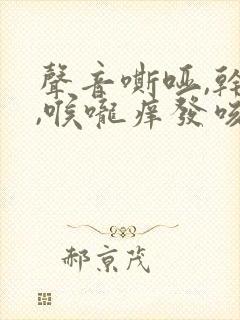 聲音嘶啞,幹
,喉嚨痒發咳
郝京茂